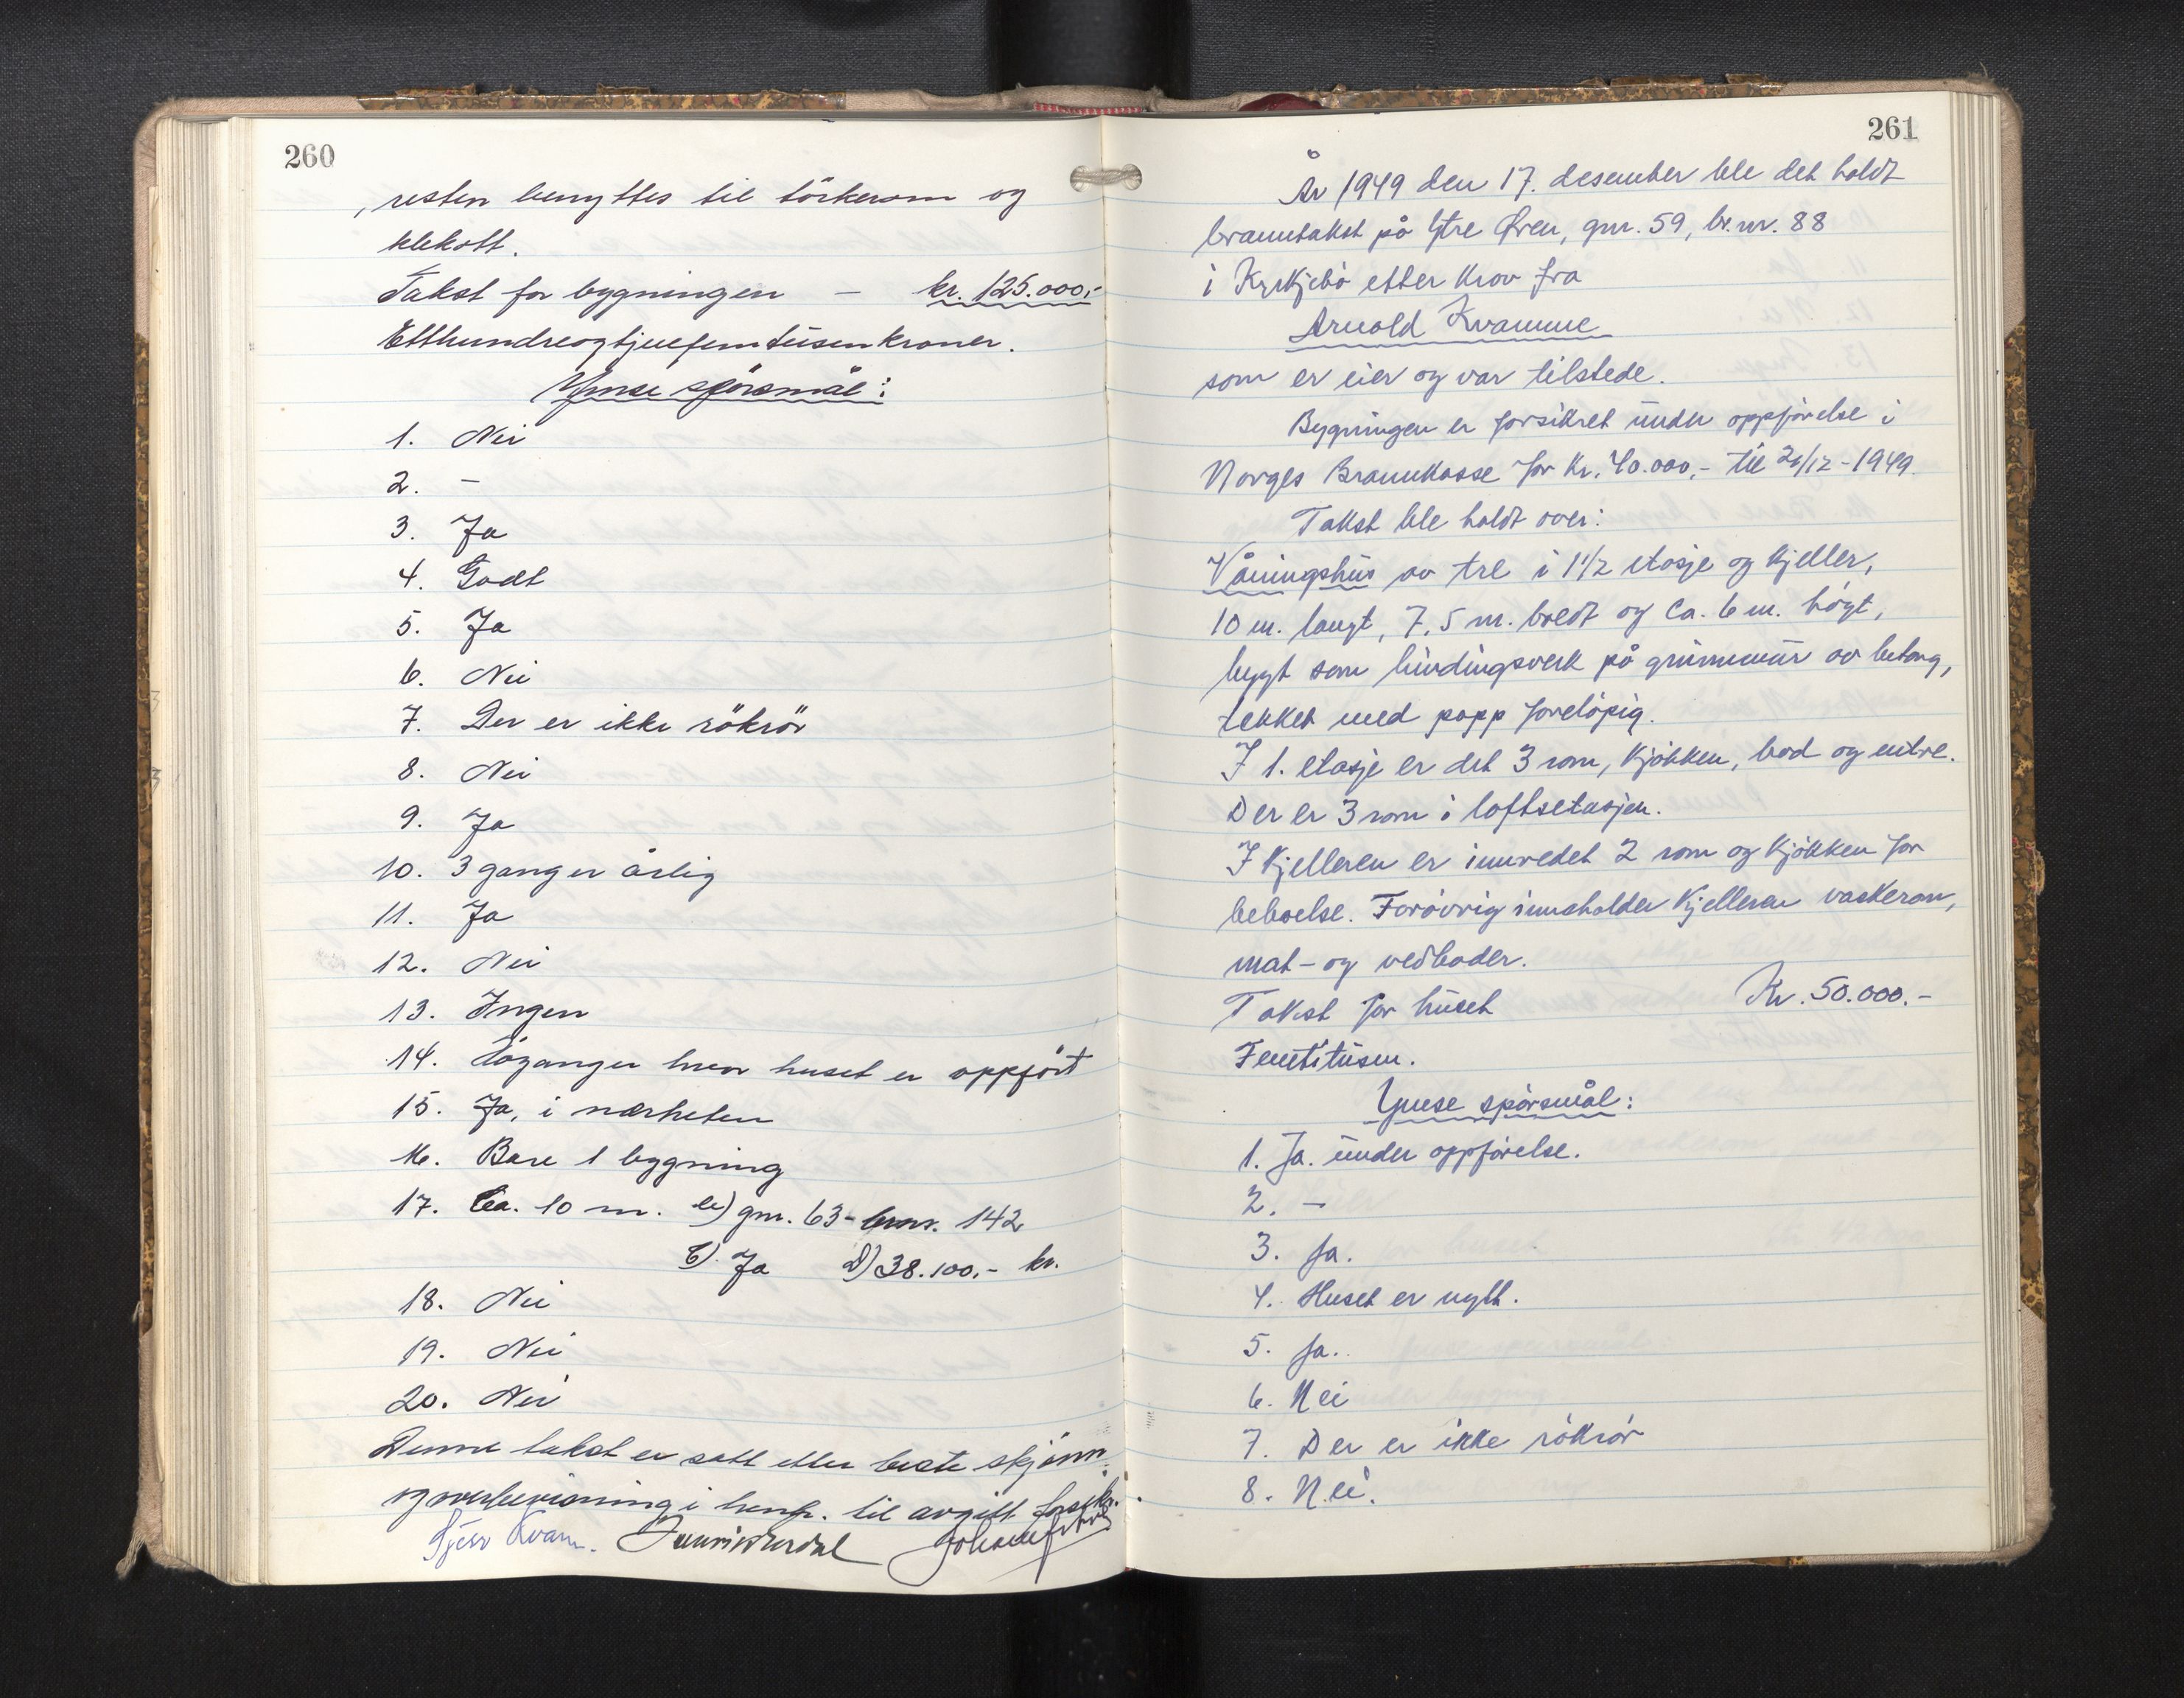 260
, resten benyttes til törkerom og
klekott.
Takst for bygningen – kr. 125.000,-
Etthundreogtjuefemtusenkroner.
Ymse spörsmål:
1. Nei
2. –
3. Ja
4. Godt
5. Ja
6. Nei
7. Der er ikke rökrör
8. Nei
9. Ja
10. 3 ganger årlig
11. Ja
12. Nei
13. Ingen
14. Höyanger hvor huset er oppfört
15. Ja, i nærheten
16. Bare 1 bygning
17. Ca. 10 m. a) gnr. 63 - bnr. 142
Ja d) 38.100,- kr.
18. Nei
19. Nei
20. Nei
Denne takst er satt etter beste skjönn
og overbevisning i henh. til avgitt forsikr.
Kvam.
261
År 1949 den 17. desember ble det holdt
branntakst på Ytre Øren, gnr. 59, br.nr. 88
i Kyrkjebö etter krav fra
Arnold Kvamme
som er eier og var tilstede.
Bygningen er forsikret under oppförelse i
Norges Brannkasse for Kr. 40.000,- til 20/12-1949
Takst ble holdt over:
Våningshus av tre i 1 1/2 etasje og kjeller,
10 m. langt, 7,5 m. bredt og ca. 6 m. högt,
bygt som bindingsverk på grunnmur av betong,
tekket med papp forelöpig.
I 1. etasje er det 3 rom, kjökken, bod og entre.
Der er 3 rom i loftsetasjen.
I kjelleren er innredet 2 rom og kjökken for
beboelse. Forövrig inneholder kjelleren vaskerom,
mat- og vedboder.
Takst for huset Kr. 50.000.-
Femtitusen.
Ymse spörsmål:
1. Ja. under oppförelse.
2. –
3. Ja.
4. Huset er nytt.
5. Ja.
6. Nei
7. Der er ikke rökrör
8. Nei.